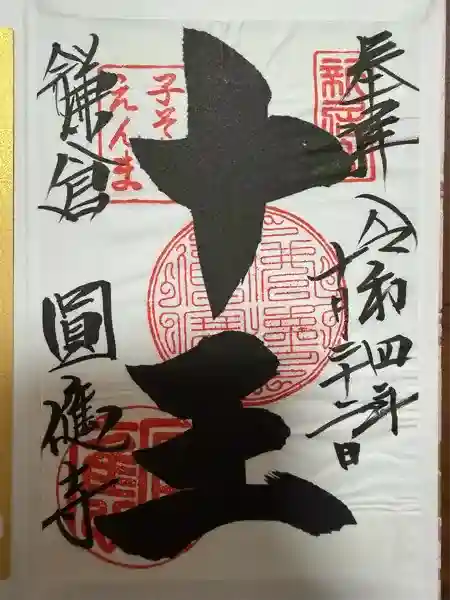 奉拝
令和四年
十月二十二日
十王
子そ
えんま
鎌倉
圓應寺